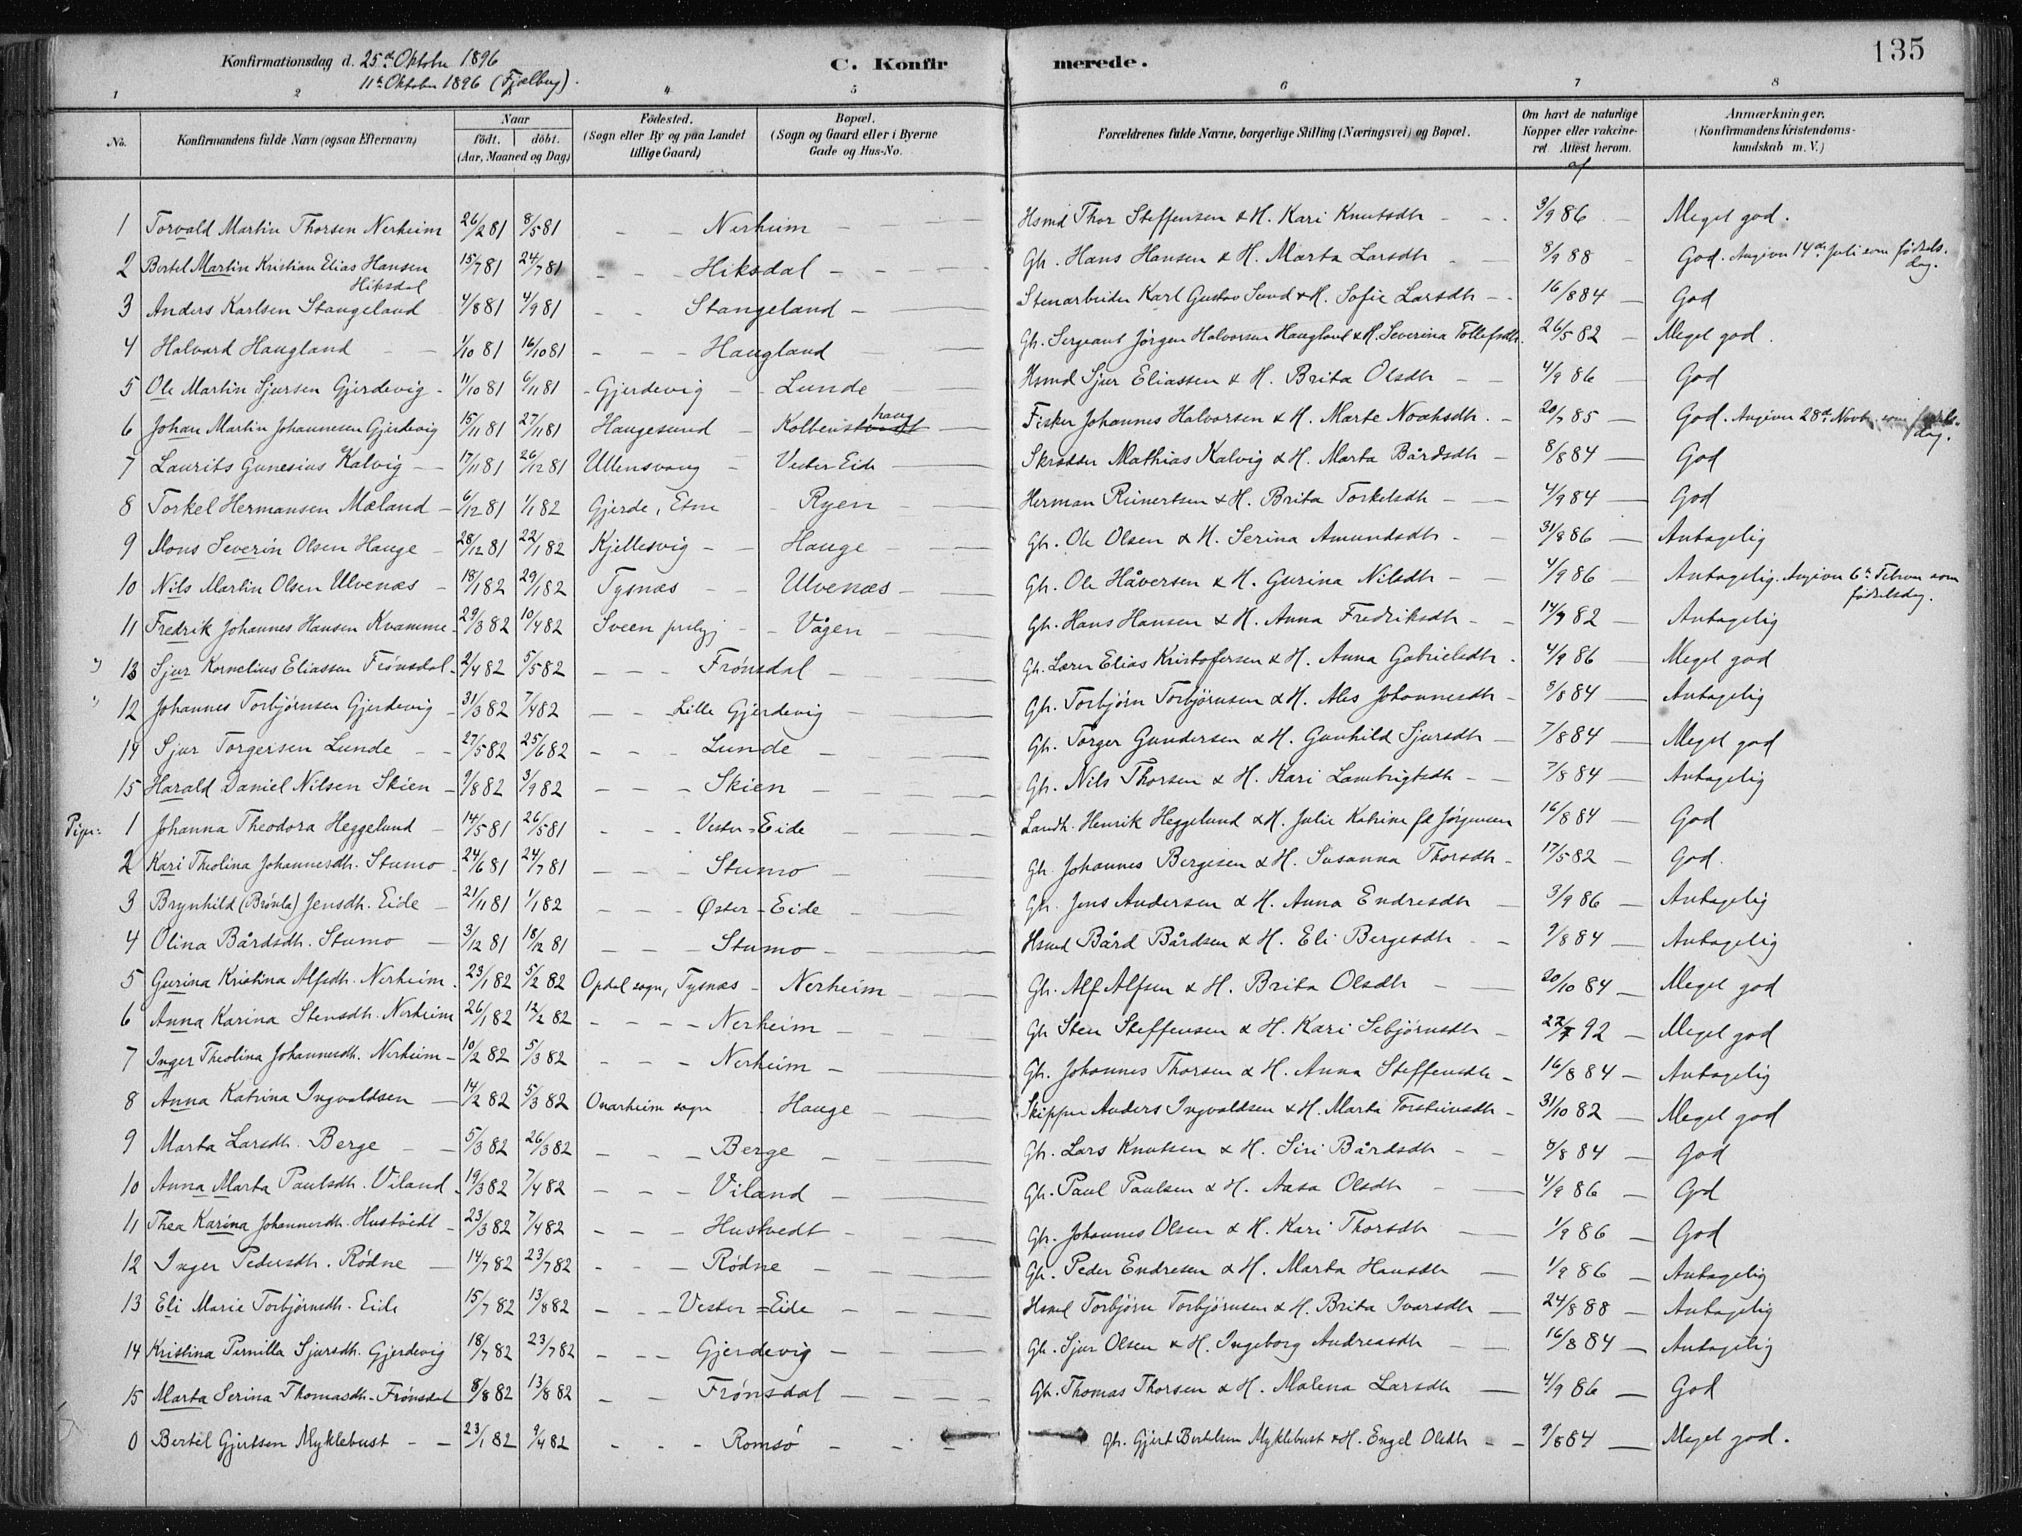 135
Konfirmationsdag d. 25de Oktober 1896 C. Konfirmerede.
11te Oktober 1896 (Fjelberg).
1 2 4 5 6 7 8
No. Konfirmandens fulde Navn (ogsaa Efternavn) Naar födt. döbt. (Aar, Maaned og Dag) Födested. (Sogn eller By og paa Landet tillige Gaard) Bopæl. (Sogn og Gaard eller i Byerne Gade og Hus-No. Forældrenes fulde Navne, borgerlige Stilling (Næringsvei) og Bopæl. Om havt de naturlige Kopper eller vakcineret. Attest herom. af Anmærkninger. (Konfirmandens Kristendomskundskab m. V.)
1 Torvald Martin Thorsen Nerheim 26/2 81 8/5 81 - - Nerheim - Hsmd Thor Steffensen & H. Kari Knutsdtr - 3/9 86 - Meget god.
2 Bertel Martin Kristian Elias Hansen Hiksdal 15/7 81 24/7 81 - - - Hiksdal - Gbr. Hans Hansen & H. Marta Larsdtr - 8/9 88 - God. Angiver 14de Juli som fødselsdag.
3 Anders Karlsen Stangeland 4/8 81 4/9 81 - - Stangeland - Stenarbeider Karl Gustav Sund & H. Sofie Larsdtr - 16/8 84 - God
4 Halvard Haugland - 1/10 81 16/10 81 - - - Haugland Gbr. Sergeant Jørgen Halvorsen Haugland & H. Severina Tollefsdtr. 26/5 82 - Meget god.
5 Ole Martin Sjursen Gjerdevig - 11/10 81 6/11 81 - Gjerdevig - Lunde Hsmd Sjur Eliassen & H. Brita Olsdtr - 4/9 86 - God
6 Johan Martin Johannesen Gjerdevig 15/11 81 27/11 81 Haugesund - Kolbenshaug Fisker Johannes Halvorsen & H. Marte Noahsdtr. - 20/7 85 - God. Angiver 28de Novbr. som fødselsdag.
7 Laurits Gunesius Kalvig - 17/11 81 26/12 81 Ullensvang - Vester Eide Skrædder Mathias Kalvig & H. Marta Bårdsdtr - 8/8 84 - God
8 Torkel Hermansen Mæland - 6/12 81 1/1 82 Gjerde, Etne - Ryen Herman Reinertsen & H. Brita Torkelsdtr - 4/9 84 - God
9 Mons Severin Olsen Hauge - 28/12 81 22/1 82 Kjellesvig - Hauge Gbr. Ole Olsen & H. Serina Amundsdtr - 31/8 86 - Antagelig
10 Nils Martin Olsen Ulvenæs - 18/1 82 29/1 82 Tysnæs - Ulvenæs Gbr. Ole Håversen & H. Gurina Nilsdtr - 4/9 86 - Antagelig. Angiver 6te Febru. som fødselsdag.
11 Fredrik Johannes Hansen Kvamme - 29/3 82 10/4 82 Sveen prstgj - Vågen Gbr. Hans Hansen & H. Anna Fredriksdtr - 14/9 82 - Antagelig
13 Sjur Kornelius Eliassen Frönsdal - 2/4 82 5/5 82 - - - Frönsdal - Gbr. Lærer Elias Kristofersen & H. Anna Gabrielsdtr. 4/9 86 - Meget god
12 Johannes Torbjörnsen Gjerdevig - 31/3 82 7/4 82 - - Lille Gjerdevig Gbr. Torbjörn Torbjörnsen & H. Ales Johannesdtr - 8/8 84 - Antagelig
14 Sjur Torgersen Lunde - 27/5 82 25/6 82 - - - Lunde - Gbr. Torger Gundersen & H. Gunhild Sjursdtr - 7/8 84 - Meget god
15 Harald Daniel Nilsen Skien - 9/8 82 3/9 82 - - - Skien - Gbr. Nils Thorsen & H. Kari Lambrigtsdtr - 7/8 84 - Antagelig
Piger: 1 Johanna Theodora Heggelund - 14/5 81 26/5 81 - - Vester-Eide - Landh. Henrik Heggelund & H. Julie Katrine fd Jørgensen 16/8 84 - God
2 Kari Theolina Johannesdtr. Stumo - 24/6 81 24/7 81 - - - Stumo - Gbr. Johannes Bergesen & H. Susanna Thorsdtr - 17/5 82 - God.
3 Brynhild (Brönla) Jensdtr. Eide - 21/11 81 1/1 82 - - - Øster-Eide - Gbr. Jens Andersen & H. Anna Endresdtr - 3/9 86 - Antagelig
4 Olina Bårdsdtr. Stumo - 3/12 81 18/12 81 - - - Stumo - Hsmd Bård Bårdsen & H. Eli Bergesdtr - 9/8 84 - Antagelig
5 Gurina Kristina Alfsdtr. Nerheim. 23/1 82 5/2 82 Opdal sogn, Tysnæs - Nerheim - Gbr. Alf Alfsen & H. Brita Olsdtr - 20/10 84 - Meget god
6 Anna Karina Stensdtr. Nerheim 26/1 82 12/2 82 - - - Nerheim - Gbr Sten Steffensen & H. Kari Sebjörnsdtr - 22/7 92 - Meget god
7 Inger Theolina Johannesdtr. Nerheim - 10/2 82 5/3 82 - - - Nerheim - Gbr. Johannes Thorsen & H. Anna Steffensdtr - 16/8 84 - Antagelig
8 Anna Katrina Ingvaldsen - 14/2 82 5/3 82 Onarheim sogn Hauge - Skipper Anders Ingvaldsen & H. Marta Torsteinsdtr - 31/10 82 - Meget god
9 Marta Larsdtr. Berge - 5/3 82 26/3 82 - - - Berge - Gbr. Lars Knutsen & H. Siri Bårdsdtr - 8/8 84 - God
10 Anna Marta Paulsdtr. Viland - 19/3 82 7/4 82 - - - Viland - Gbr. Paul Paulsen & H. Aasa Olsdtr - 4/9 86 - God
11 Thea Karina Johannesdtr. Hustvedt - 23/3 82 7/4 82 - - - Hustvedt - Gbr. Johannes Olsen & H. Kari Thorsdtr - 1/9 86 - God
12 Inger Pedersdtr. Rödne - 14/7 82 23/7 82 - - - Rödne - Gbr. Peder Endresen & H. Marta Hansdtr - 1/9 86 - Antagelig
13 Eli Marie Torbjörnsdtr. Eide - 15/7 82 13/8 82 - - Vester-Eide - Hsmd Torbjörn Torbjörnsen & H. Brita Ivarsdtr - 24/8 88 - Antagelig
14 Kristina Pernilla Sjursdtr. Gjerdevig 18/7 82 23/7 82 - - - Gjerdevig - Gbr. Sjur Olsen & H. Ingeborg Andreasdtr - 16/8 84 - Antagelig
15 Marta Serina Thomasdtr. Frönsdal 8/8 82 13/8 82 - - Frönsdal - Gbr. Thomas Thorsen & H. Malena Larsdtr - 4/9 86 - God
0 Bertel Gjertsen Myklebust - 23/1 82 9/4 82 - - - Romsö - Gbr. Gjert Bertelsen Myklebust & H. Engel Olsdtr - 9/8 84 - Meget god.